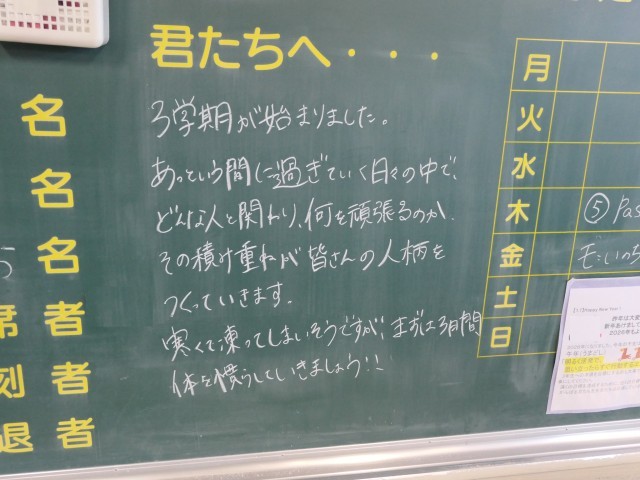 君たちへ・・・
3学期が始まりました。
あっという間に過ぎていく日々の中で、
どんな人と関わり、何を頑張るのか、
その積み重ねが皆さんの人柄を
つくっていきます。
寒くて凍ってしまいそうですが、まずは3日間
体を慣らしていきましょう!!
名
名
名
席 者
刻 者
退 者
月
火
水
木 ⑤ Pas
金 モ:いのち
土
日
Happy New Year!